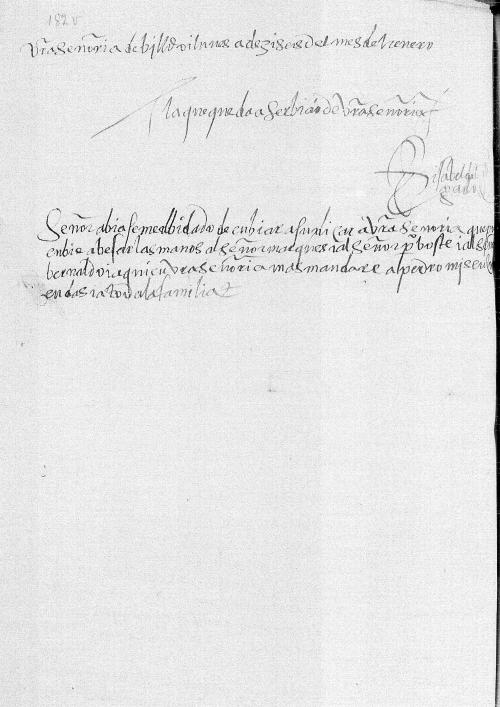 182v
vrã señoria de bill
a deziseis del mes de henero
la que queda a serbiçio de vrã señoria
isabel del
señor abiaseme olbidado de enbiar a suplicar a vrã señoria que
enbie a besar las manos al señor marques i al señor preboste i al señor
bernaldo i a quien vrã señoria mas mandare a pedro mis en
en toda la familia